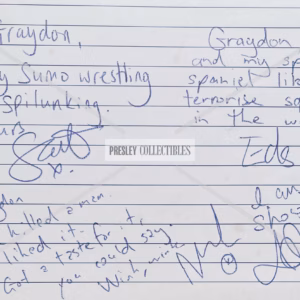 Graydon,
y Sumo wrestling
spilunking.
urs
Scott
x.
Graydon
and my sp
spaniel lik
terrorise sq
in the w
Eds
PRESLEY COLLECTIBLES
don
killed a man.
liked it. for it,
Got a taste
you could say.
Wink, wink
I am
sho